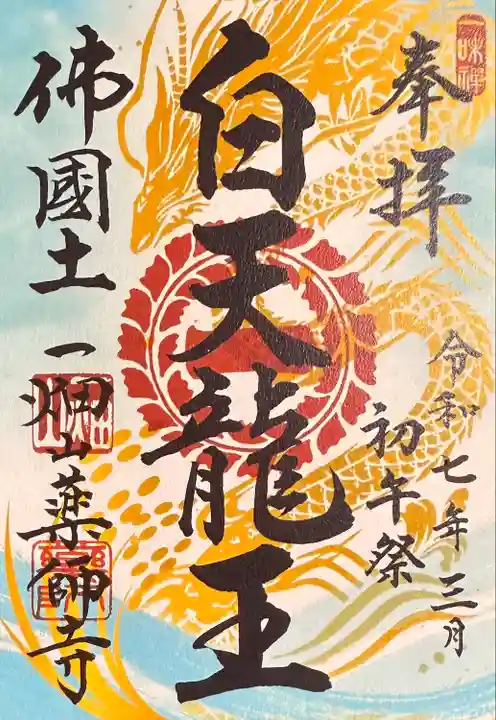 一味禪
奉拝
令和七年三月
初午祭
白天龍王
佛國土
一畑山薬師寺